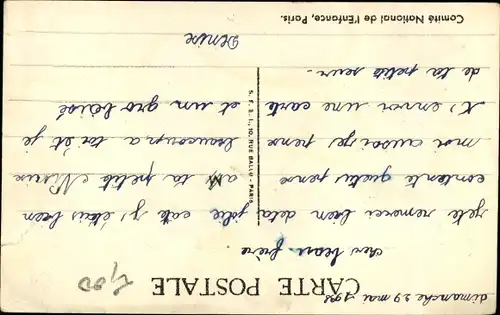 dimanche 29 mai 1938
CARTE POSTALE
cher beau frère
je te remerci bien de ta
jolie carte j'étai bien
contente que tu pense
a ta petite Denise
moi aussi je pense
beaucoup a toi et je
t'envoi une carte
et un gro baisé
de ta petite seur.
Denise
S. F. E. L., 10, RUE BALLU - PARIS
Comité National de l'Enfance, Paris.